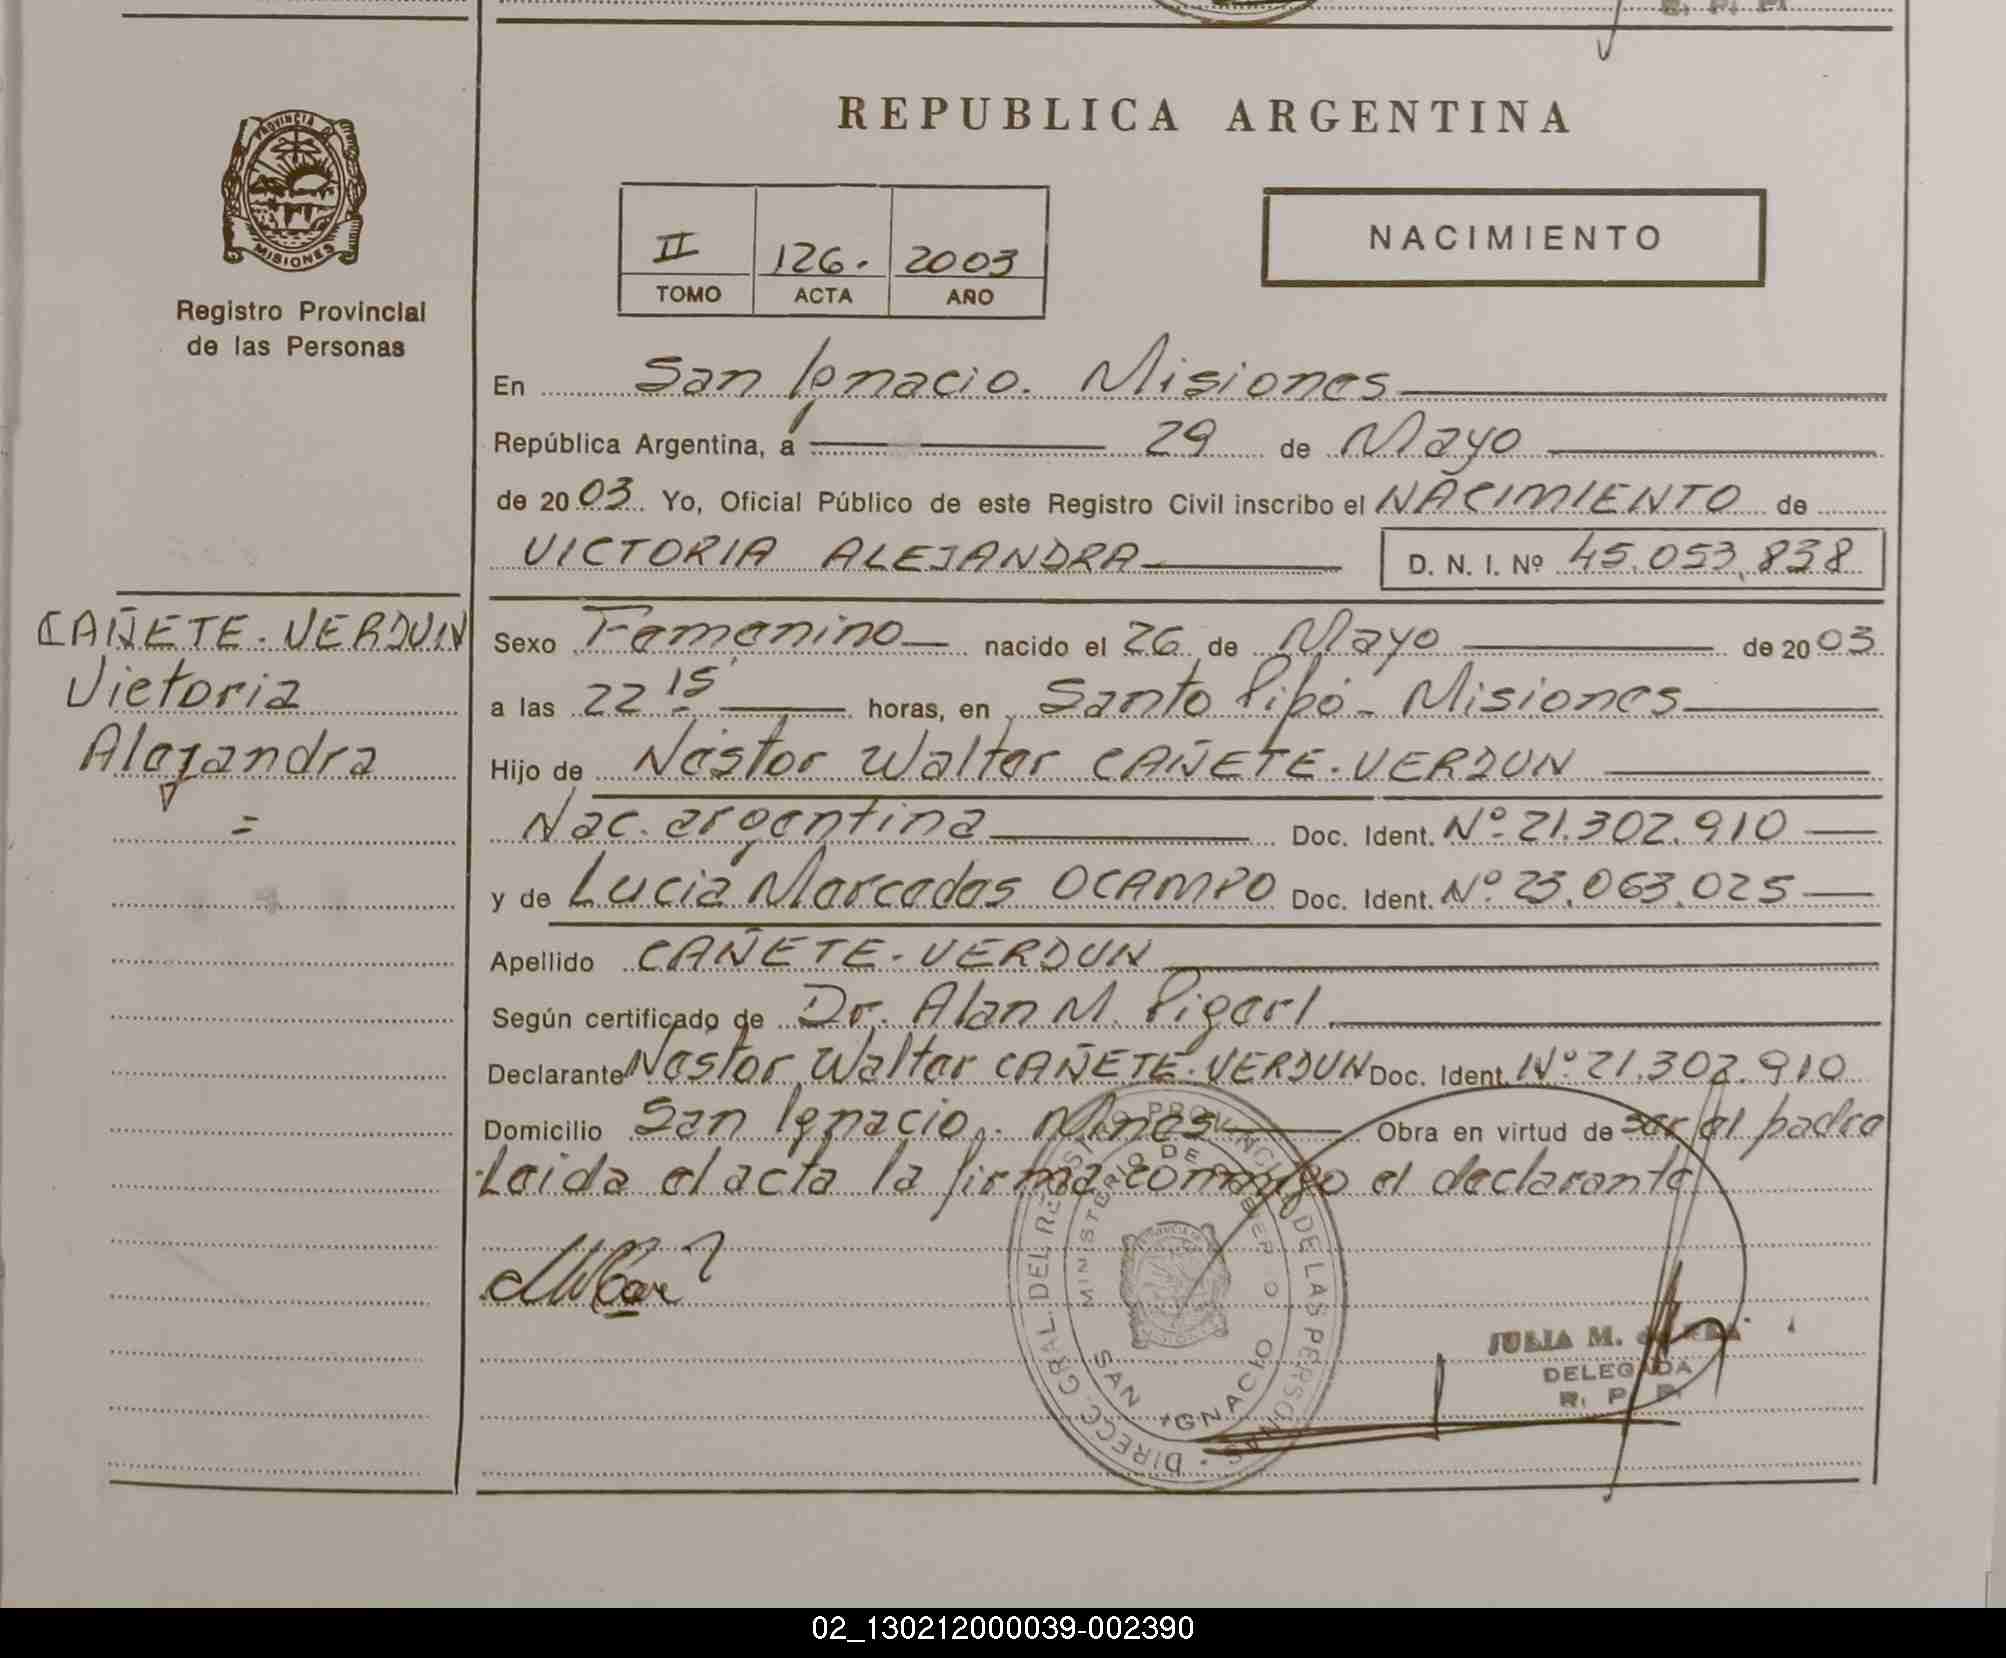 REPUBLICA ARGENTINA
PROVINCIA
MISIONES
Registro Provincial
de las Personas
II 126. 2003
TOMO ACTA AÑO
NACIMIENTO
En San Ignacio. Misiones
República Argentina, a 29 de Mayo
de 2003. Yo, Oficial Público de este Registro Civil inscribo el NACIMIENTO de
VICTORIA ALEJANDRA D. N. I. Nº 45.053.838
CAÑETE-VERDUN
Victoria
Alejandra
=
Sexo Femenino nacido el 26 de Mayo de 2003
a las 22 15' horas, en Santo Pipó - Misiones
Hijo de Néstor Walter CAÑETE-VERDUN
Nac. argentina Doc. Ident. Nº 21.302.910
y de Lucia Mercedes OCAMPO Doc. Ident. Nº 23.063.025
Apellido CAÑETE-VERDUN
Según certificado de Dr. Alan M. Pigerl
Declarante Nestor Walter CAÑETE-VERDUN Doc. Ident. Nº 21.302.910
Domicilio San Ignacio. Mnes Obra en virtud de ser el padre
Leida el acta la firma conmigo el declarante
DIRECC. GRAL. DEL REGISTRO PROVINCIAL DE LAS PERSONAS
MINISTERIO DE GOBIERNO
SAN IGNACIO
JULIA M.
DELEGADA
R. P. P.
02_130212000039-002390